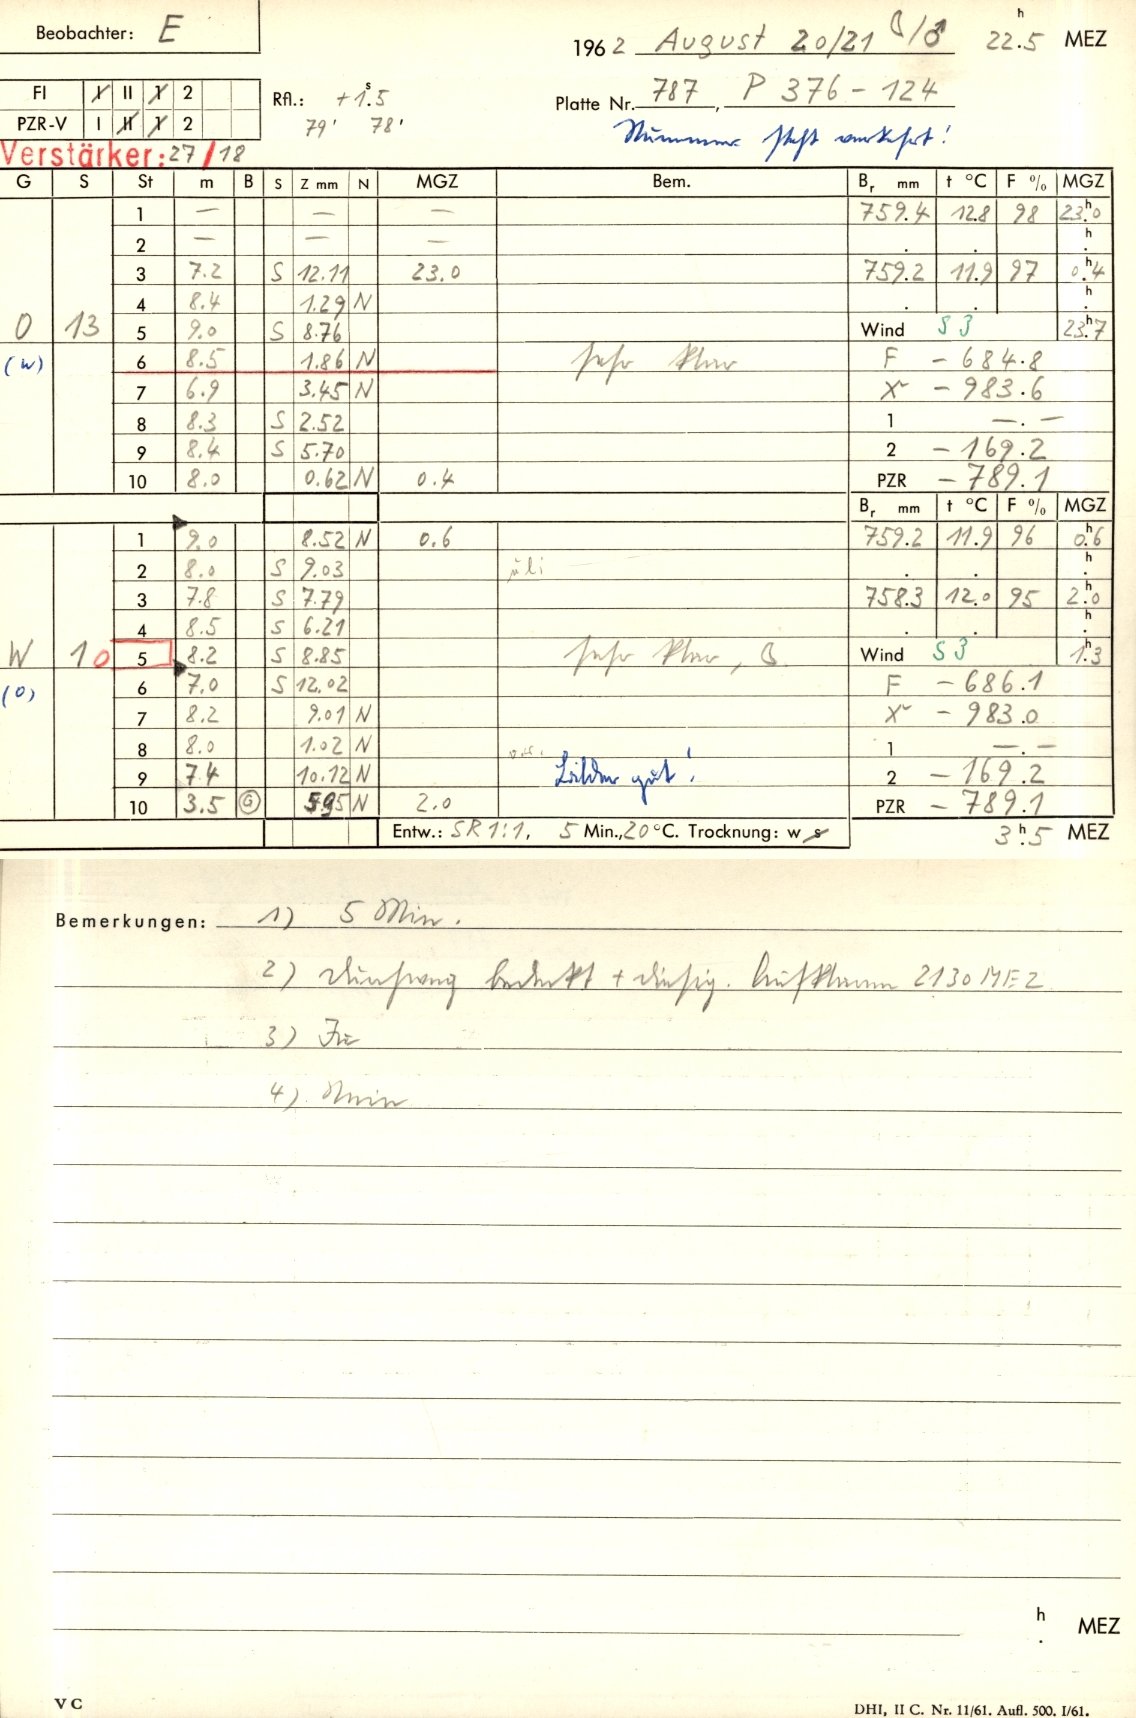 Beobachter: E
1962 August 20/21 ☾/♂ 22h.5 MEZ
FI I II 1 2
PZR-V I II 1 2
Rfl.: +1s.5
79' 78'
Platte Nr. 787, P 376-124
Nummer steht verkehrt!
Verstärker: 27/18
G S St m B S Z mm N MGZ Bem. Br mm t °C F % MGZ
1 — — — 759.4 12.8 98 23h.0
2 — — — . . h.
3 7.2 S 12.11 23.0 759.2 11.9 97 0h.4
4 8.4 1.29 N . . h.
O 13 5 9.0 S 8.76 Wind S 3 23h.7
(W) 6 8.5 1.86 N sehr klar F - 684.8
7 6.9 3.45 N X - 983.6
8 8.3 S 2.52 1 —.—
9 8.4 S 5.70 2 - 169.2
10 8.0 0.62 N 0.4 PZR - 789.1
Br mm t °C F % MGZ
1 9.0 8.52 N 0.6 759.2 11.9 96 0h.6
2 8.0 S 9.03 . . h.
3 7.8 S 7.79 758.3 12.0 95 2h.0
4 8.5 S 6.21 . . h.
W 10 5 8.2 S 8.85 sehr klar, ☾ Wind S 3 1h.3
(O) 6 7.0 S 12.02 F - 686.1
7 8.2 9.01 N X - 983.0
8 8.0 1.02 N 1 —.—
9 7.4 10.12 N Bilder gut! 2 - 169.2
10 3.5 G 5.95 N 2.0 PZR - 789.1
Entw.: SR 1:1, 5 Min., 20 °C. Trocknung: w s 3h.5 MEZ
Bemerkungen: 1) 5 Min.
2) Durchweg bedeckt + diesig. Aufklaren 2130 MEZ
3)
4) Nein
h. MEZ
V C
DHI, II C. Nr. 11/61. Aufl. 500. I/61.